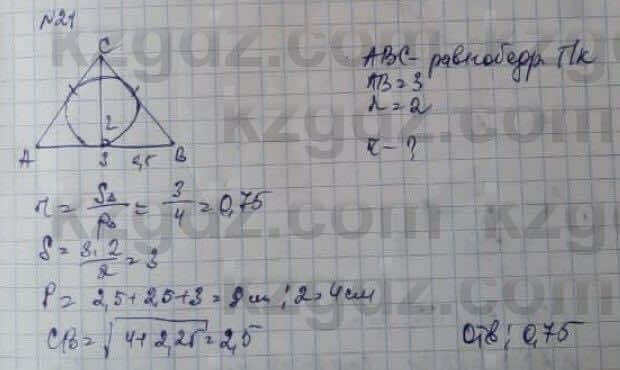 №21
C
ABC - равнобедр. Пк
AB = 3
h = 2
2
r - ?
A
3
1,5
B
r = S△/p = 3/4 = 0,75
S = 3·2/2 = 3
P = 2,5 + 2,5 + 3 = 8 см : 2 = 4 см
CB = √4 + 2,25 = 2,5
Отв: 0,75
kzgdz.com